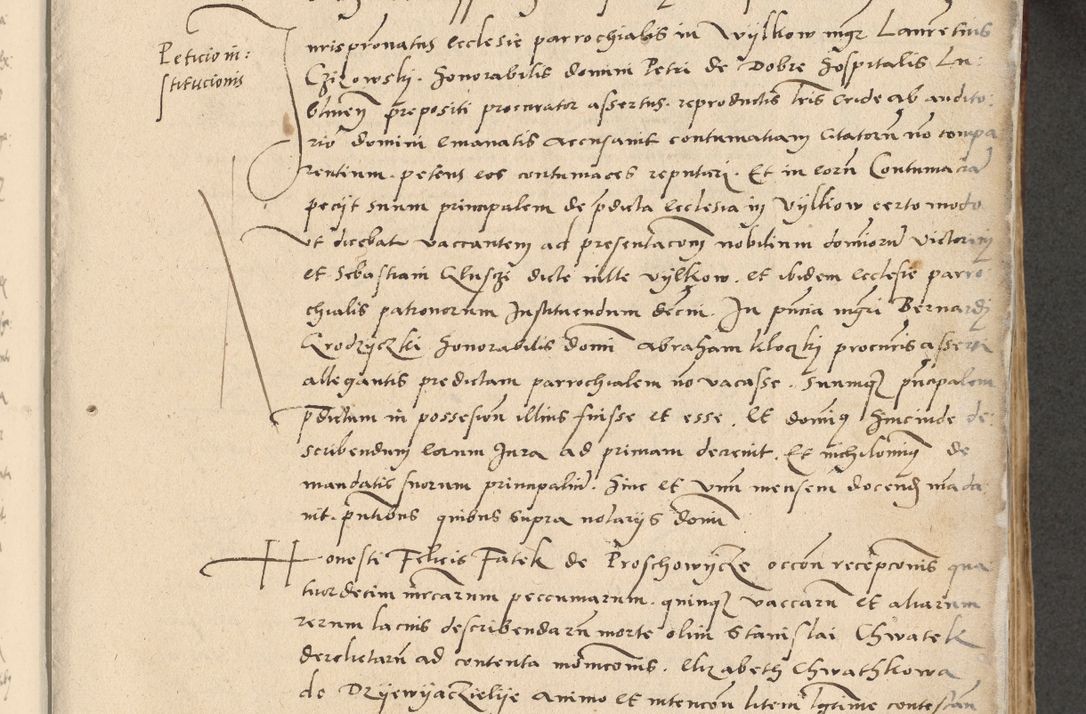 Peticio in:
stitucionis
Jurispronatus ecclesie parrochialis in Wylkow mgr Lauretius
Czizowski. Honorabilis domini Petri de Dobre hospitalis Lu:
blinen prepositi procurator assertus. reproductis lris cride ab audito:
rio domini emanatis accusavit contumatiam citatorum no compa
rentium. petens eos contumaces reputari. Et in eorum Contumacia
pecijt suum principalem de pdicta ecclesia in Vylkow certo modo
ut dicebatur vaccantem ad presentaconem nobilium domiorum Victorini
et Sebastiani Glusczi dicte ville Vylkow. et ibidem ecclesie parro
chialis patronorum Instituendum decerni. In pncia mgri Bernardi
Grodziczki Honorabilis domini Abraham kloczki procuris asserti
allegantis predictam parrochialem no vacasse. Suumque pncipalem
pdictum in possesione illius fuisse et esse. Et dominus Hincinde de:
scribendum eorum Jura ad primam decrevit. Et nichilominus de
mandatis suorum principalium. Hinc et Unum mensem docendum manda
vit. pntibus quibus supra notarijs domini
Honesti Felicis Fatek de Proschowycze occone recepconis qua
tuordecim mrcarum peccuniarum. quinque vaccarum et aliarum
rerum lacius describendarum morte olim Stanislai Chwatek
derelictarum ad contenta monicionis. Elizabeth Chwathkowa
de Dzyewyaczielije animo et intencone litem lgtime contestan